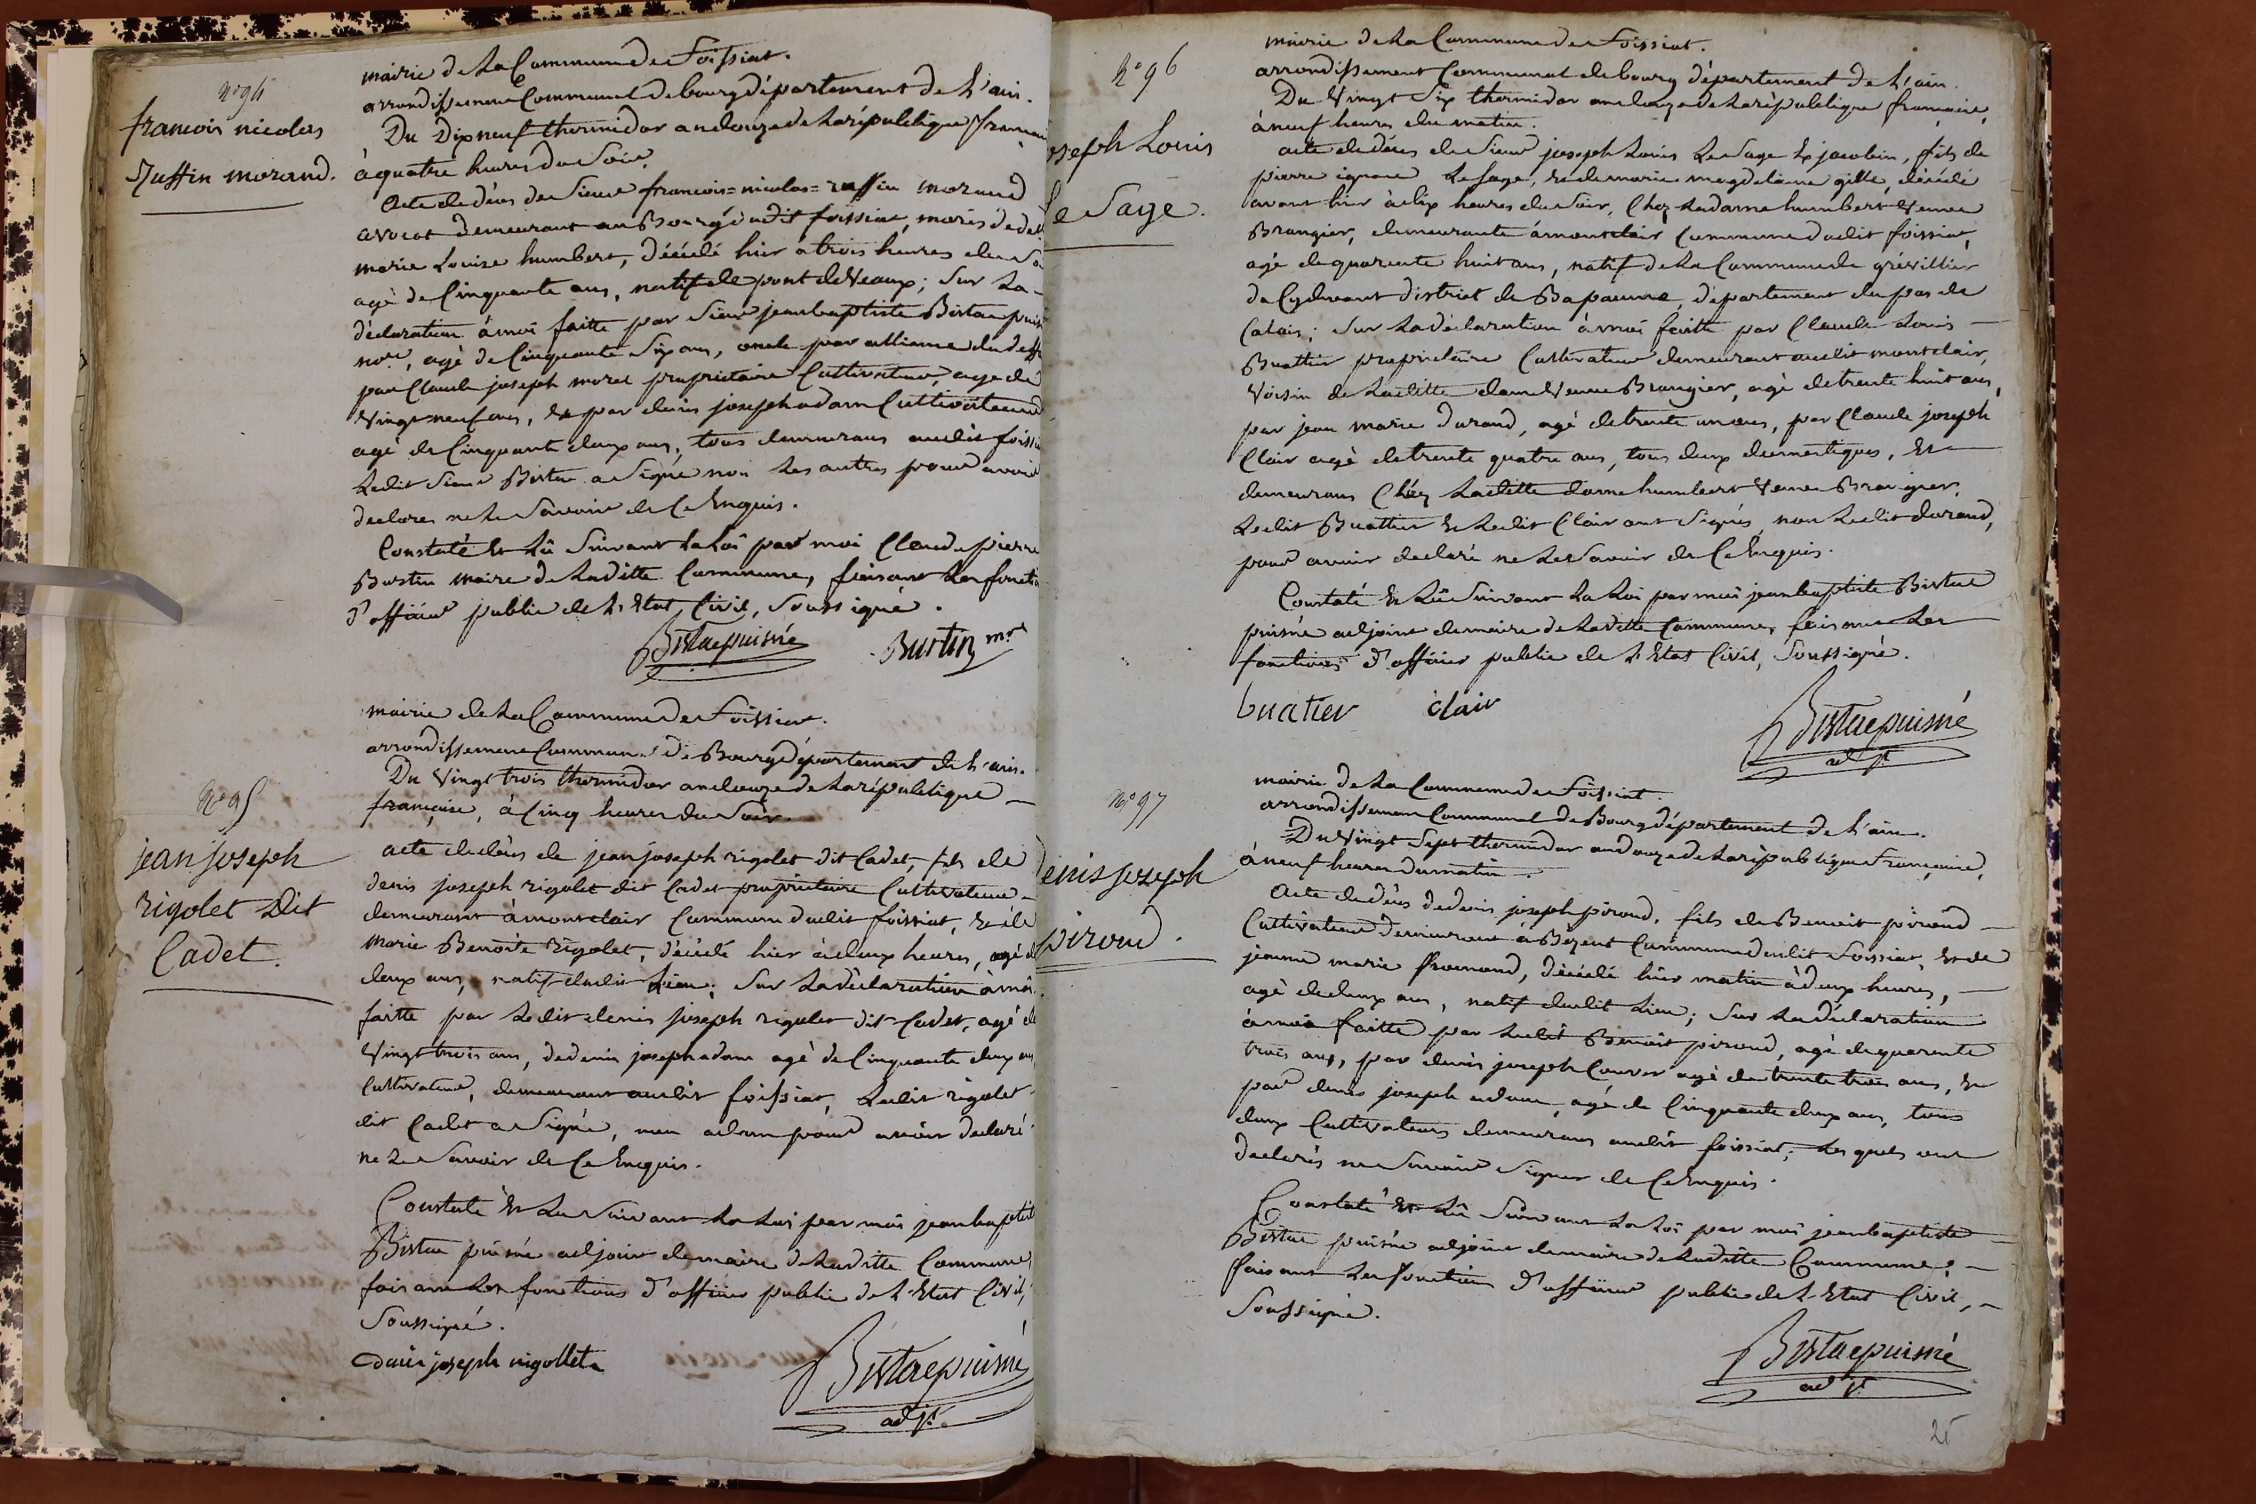 n° 94
francois nicolas
Ruffin morand.
mairie de La Commune de Foissiat.
arrondissement Communal de bourg département de L'ain.
Du Dix neuf thermidor an douze de La république
à quatre heures du Soir.
Acte de décés de Sieur francois = nicolas = ruffin morand
avocat demeurant au Bourg dudit foissiat, mariés de
marie Louise humbert, décédé hier a trois heures du
agé de Cinquante ans, natif de pont de Veaux; Sur La
déclaration à moi faitte par Sieur jean baptiste Bistac
no.re, agé de Cinquante Six ans, oncle par alliance du
par Claude joseph morel proprietaire Cultivateur, agé de
Vingt neuf ans, Et par denis joseph adam Cultivateur
agé de Cinquante deux ans, tous demeurans audit
Ledit Sieur Bistac a Signé non Les autres pour avoir
declarés ne Le Savoir de Ce Enquis.
Constaté Et Lû Suivant La Loi par moi Claude pierre
Burtin maire de Laditte Commune, faisant Les
d'officier public de L'Etat Civil, Soussigné.
Bistac puisné Burtin m.re
n° 95
jean joseph
rigolet Dit
Cadet.
mairie de La Commune de Foissiat.
arrondissement Communal de Bourg département de L'ain.
Du Vingt trois thermidor an douze de La république
française, à Cinq heures du Soir.
acte de décés de jean joseph rigolet dit Cadet, fils de
denis joseph rigolet dit Cadet proprietaire Cultivateur
demeurant à montclair Commune dudit foissiat, Et de
marie Benoite Rigolet, décédé hier à deux heures, agé de
deux ans, natif dudit Lieu; Sur La déclaration à moi
faitte par Ledit denis joseph rigolet dit Cadet, agé de
Vingt trois ans, de denis joseph adam agé de Cinquante deux ans
Cultivateur, demeurant audit foissiat, Ledit rigolet
dit Cadet a Signé, non adam pour avoir declaré
ne Le Savoir de Ce Enquis.
Constaté Et Lu Suivant La Loi par moi jean baptiste
Bistac puisné adjoint de maire de Laditte Commune
faisant Les fonctions d'officier public de L'Etat Civil,
Soussigné.
Denis joseph rigollet Bistac puisné
adj.t
n° 96
joseph Louis
Le Sage.
mairie de La Commune de Foissiat.
arrondissement Communal de bourg département de L'ain.
Du Vingt Six thermidor an douze de La république française,
à neuf heures du matin.
acte de décés de Sieur joseph Louis Le Sage Ex jacobin, fils de
pierre ignace Le Sage, Et de marie magdelaine gille, décédé
avant hier à dix heures du Soir, Chez La dame humbert Veuve
Brangier, demeurante à montclair Commune dudit foissiat,
agé de quarante huit ans, natif de La Commune de grévillier
du Cydevant district de Bapaume, département du pas de
Calais; Sur La déclaration à moi faitte par Claude Louis
Buattier proprietaire Cultivateur demeurant audit montclair,
Voisin de Laditte dame Veuve Brangier, agé de trente huit ans,
par jean marie durand, agé de trente un ans, par Claude joseph
Clair agé de trente quatre ans, tous deux domestiques, Et
demeurans Chéz Laditte dame humbert Veuve Brangier.
Ledit Buattier Et Ledit Clair ont Signés non Ledit durand,
pour avoir declaré ne Le Savoir de Ce Enquis.
Constaté Et Lû Suivant La Loi par moi jean baptiste Bistac
puisné adjoint de maire de Laditte Commune, faisant Les
fonctions d'officier public de L'Etat Civil, Soussigné.
buatier clair
Bistac puisné
adj.t
n° 97
Denis joseph
piroud.
mairie de La Commune de Foissiat.
arrondissement Communal de Bourg département de L'ain.
Du Vingt Sept thermidor an douze de La république Française,
à neuf heures du matin.
Acte de décés de denis joseph piroud, fils de Benoit piroud
Cultivateur demeurant à Bezent Commune dudit Foissiat, Et de
jeanne marie froemond, décédé hier matin à deux heures,
agé de deux ans, natif dudit Lieu; Sur La déclaration
à moi faitte par Ledit Benoit piroud, agé de quarante
trois ans, par denis joseph Couvor agé de trente trois ans, Et
par denis joseph adam, agé de Cinquante deux ans, tous
deux Cultivateurs demeurans audit foissiat; Les quels ont
declarés ne Savoir Signer de Ce Enquis.
Constaté Et Lû Suivant La Loi par moi jean baptiste
Bistac puisné adjoint de maire de Laditte Commune,
faisant Les fonctions d'officier public de L'Etat Civil,
Soussigné.
Bistac puisné
adj.t
25